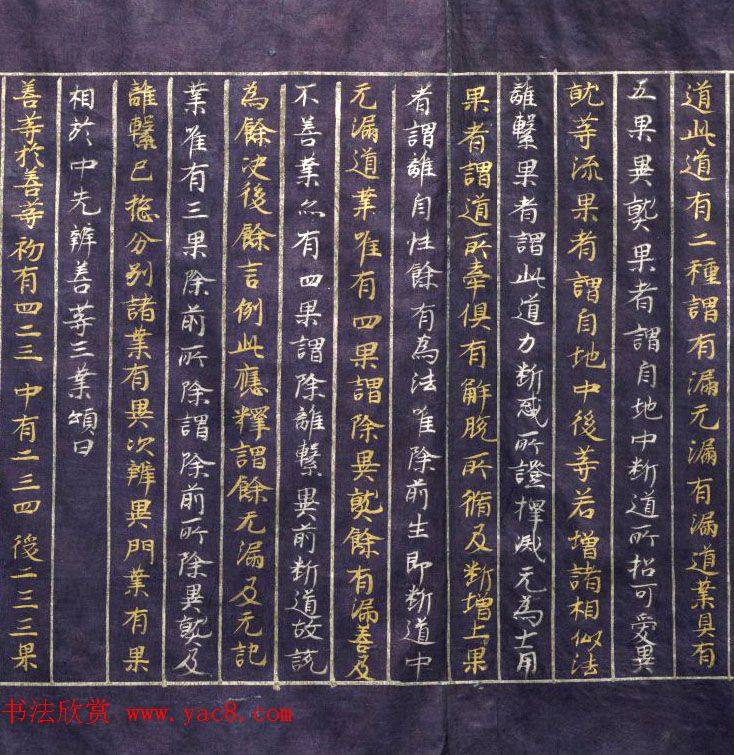 道此道有二種謂有漏无漏有漏道業具有
五果異熟果者謂自地中断道所招可愛異
熟等流果者謂自地中後等若增諸相似法
離繫果者謂此道力断惑所證擇滅无為士用
果者謂道所牽俱有解脫所脩及断增上果
者謂離自性餘有為法唯除前生即断道中
无漏道業唯有四果謂除異熟餘有漏善及
不善業亦有四果謂除離繫異前断道故説
為餘次後餘言例此應釋謂餘无漏及无記
業唯有三果除前所除謂除前所除異熟及
離繫已揔分別諸業有果次辨異門業有果
相於中先辨善等三業頌曰
善等於善等初有四二三中有二三四後二三三果
书法欣赏 www.yac8.com